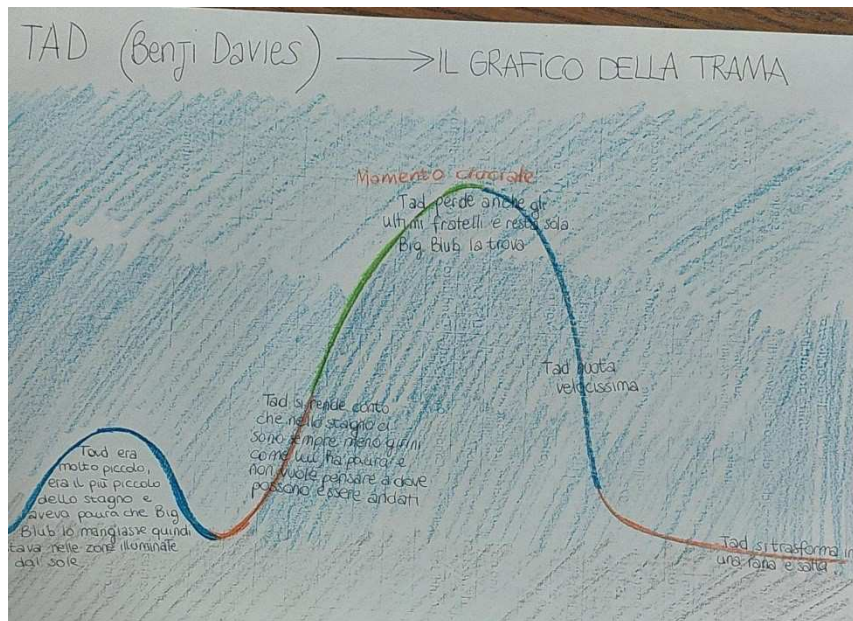 TAD (Benji Davies) → IL GRAFICO DELLA TRAMA
Momento cruciale
Tad perde anche gli
ultimi fratelli e resta sola
Big Blub la trova
Tad nuota
velocissima
Tad si rende conto
che nello stagno ci
sono sempre meno girini
come lui ha paura e
non vuole pensare a dove
possono essere andati
Tad era
molto piccolo,
era il più piccolo
dello stagno e
aveva paura che Big
Blub lo mangiasse quindi
stava nelle zone illuminate
dal sole
Tad si trasforma in
una rana e salta.